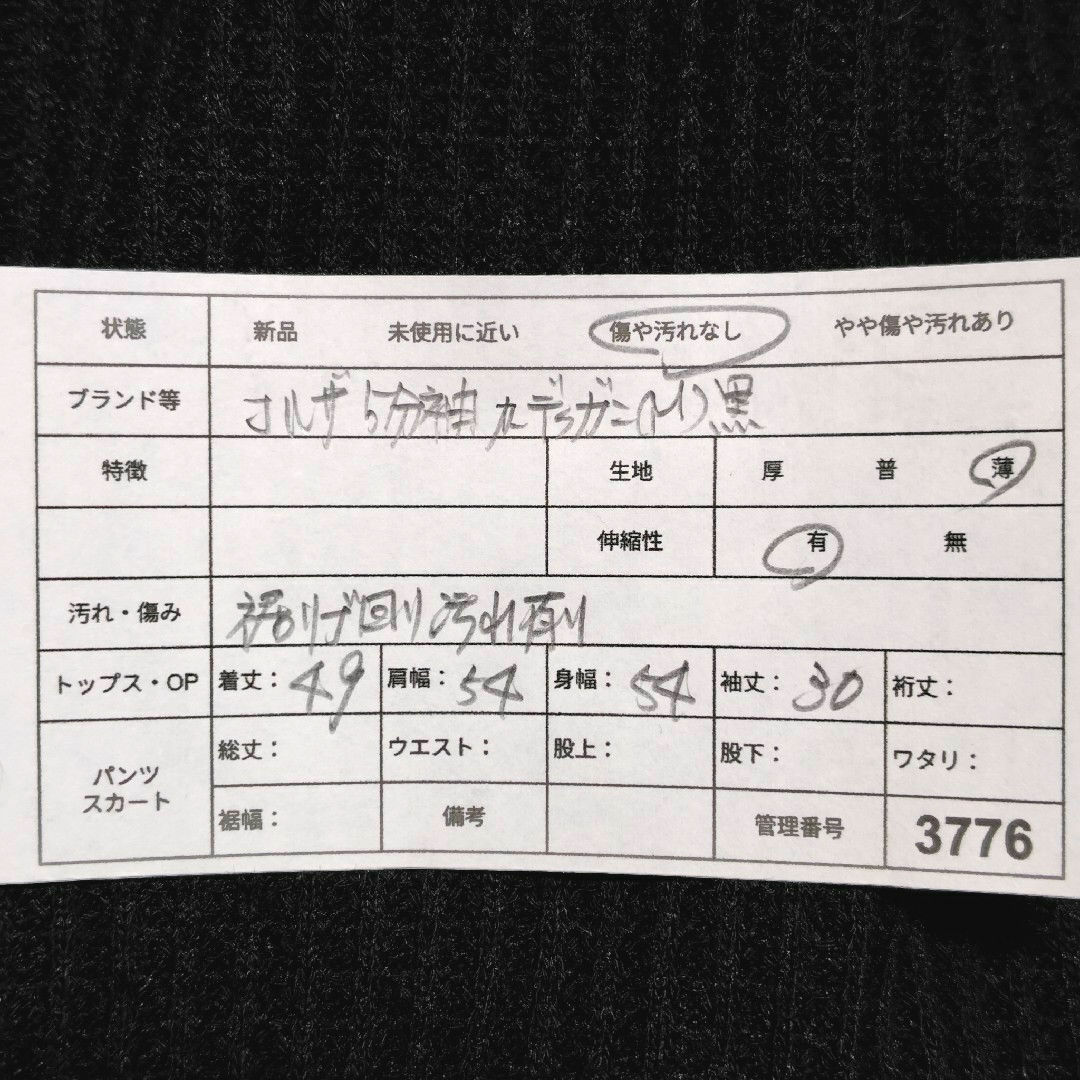 状態 新品 未使用に近い 傷や汚れなし やや傷や汚れあり
ブランド等 コルザ 5分袖 カーディガン(M)黒
特徴 生地 厚 普 薄
伸縮性 有 無
汚れ・傷み 裾リブ回り汚れ有り
トップス・OP 着丈：49 肩幅：54 身幅：54 袖丈：30 裄丈：
パンツ スカート 総丈： ウエスト： 股上： 股下： ワタリ：
裾幅： 備考 管理番号 3776